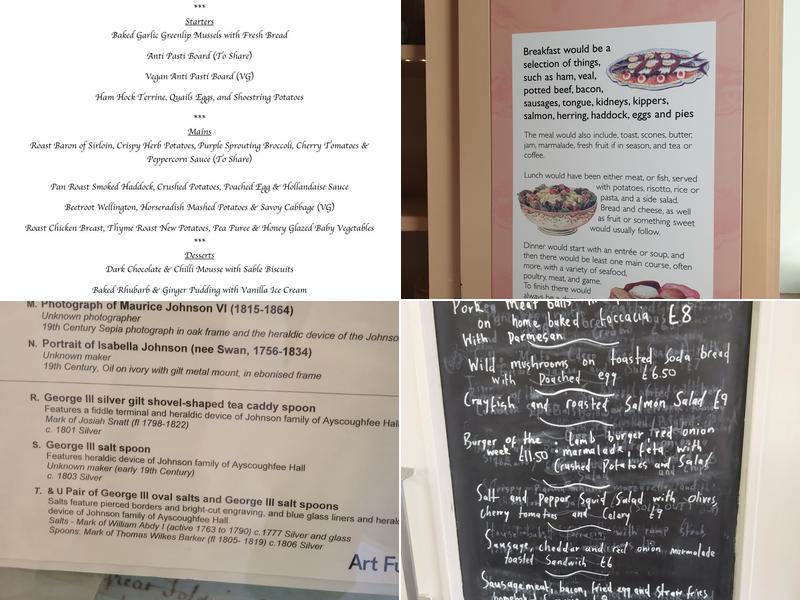 ***
Starters
Baked Garlic Greenlip Mussels with Fresh Bread
Anti Pasti Board (To Share)
Vegan Anti Pasti Board (VG)
Ham Hock Terrine, Quails Eggs, and Shoestring Potatoes
***
Mains
Roast Baron of Sirloin, Crispy Herb Potatoes, Purple Sprouting Broccoli, Cherry Tomatoes &
Peppercorn Sauce (To Share)
Pan Roast Smoked Haddock, Crushed Potatoes, Poached Egg & Hollandaise Sauce
Beetroot Wellington, Horseradish Mashed Potatoes & Savoy Cabbage (VG)
Roast Chicken Breast, Thyme Roast New Potatoes, Pea Puree & Honey Glazed Baby Vegetables
***
Desserts
Dark Chocolate & Chilli Mousse with Sable Biscuits
Baked Rhubarb & Ginger Pudding with Vanilla Ice Cream
Breakfast would be a
selection of things,
such as ham, veal,
potted beef, bacon,
sausages, tongue, kidneys, kippers,
salmon, herring, haddock, eggs and pies
The meal would also include, toast, scones, butter,
jam, marmalade, fresh fruit if in season, and tea or
coffee.
Lunch would have been either meat, or fish, served
with potatoes, risotto, rice or
pasta, and a side salad.
Bread and cheese, as well
as fruit or something sweet
would usually follow.
Dinner would start with an entrée or soup, and
then there would be least one main course, often
more, with a variety of seafood,
poultry, meat, and game.
To finish there would
always be a
M. Photograph of Maurice Johnson VI (1815-1864)
Unknown photographer
19th Century Sepia photograph in oak frame and the heraldic device of the Johnso
N. Portrait of Isabella Johnson (nee Swan, 1756-1834)
Unknown maker
19th Century, Oil on ivory with gilt metal mount, in ebonised frame
R. George III silver gilt shovel-shaped tea caddy spoon
Features a fiddle terminal and heraldic device of Johnson family of Ayscoughfee Hall
Mark of Josiah Snatt (fl 1798-1822)
c. 1801 Silver
S. George III salt spoon
Features heraldic device of Johnson family of Ayscoughfee Hall
Unknown maker (early 19th Century)
c. 1803 Silver
T. & U Pair of George III oval salts and George III salt spoons
Salts feature pierced borders and bright-cut engraving, and blue glass liners and heral
device of Johnson family of Ayscoughfee Hall.
Salts - Mark of William Abdy I (active 1763 to 1790) c.1777 Silver and glass
Spoons: Mark of Thomas Wilkes Barker (fl 1805- 1819) c.1806 Silver
Art Fu
Pork meat balls
on home baked foccacia £8
With Parmesan
Wild mushrooms on toasted Soda bread
with Poached egg £6.50
Crayfish and roasted Salmon Salad £9
Burger of the : Lamb burger, red onion
week £11.50 : marmalade, feta with
Crushed Potatoes and Salad
Salt and Pepper Squid Salad with Olives,
Cherry tomatoes and Celery £9
Sausage, cheddar and red onion marmalade
toasted Sandwich £6
Sausagemeat, bacon, fried egg and straw fries